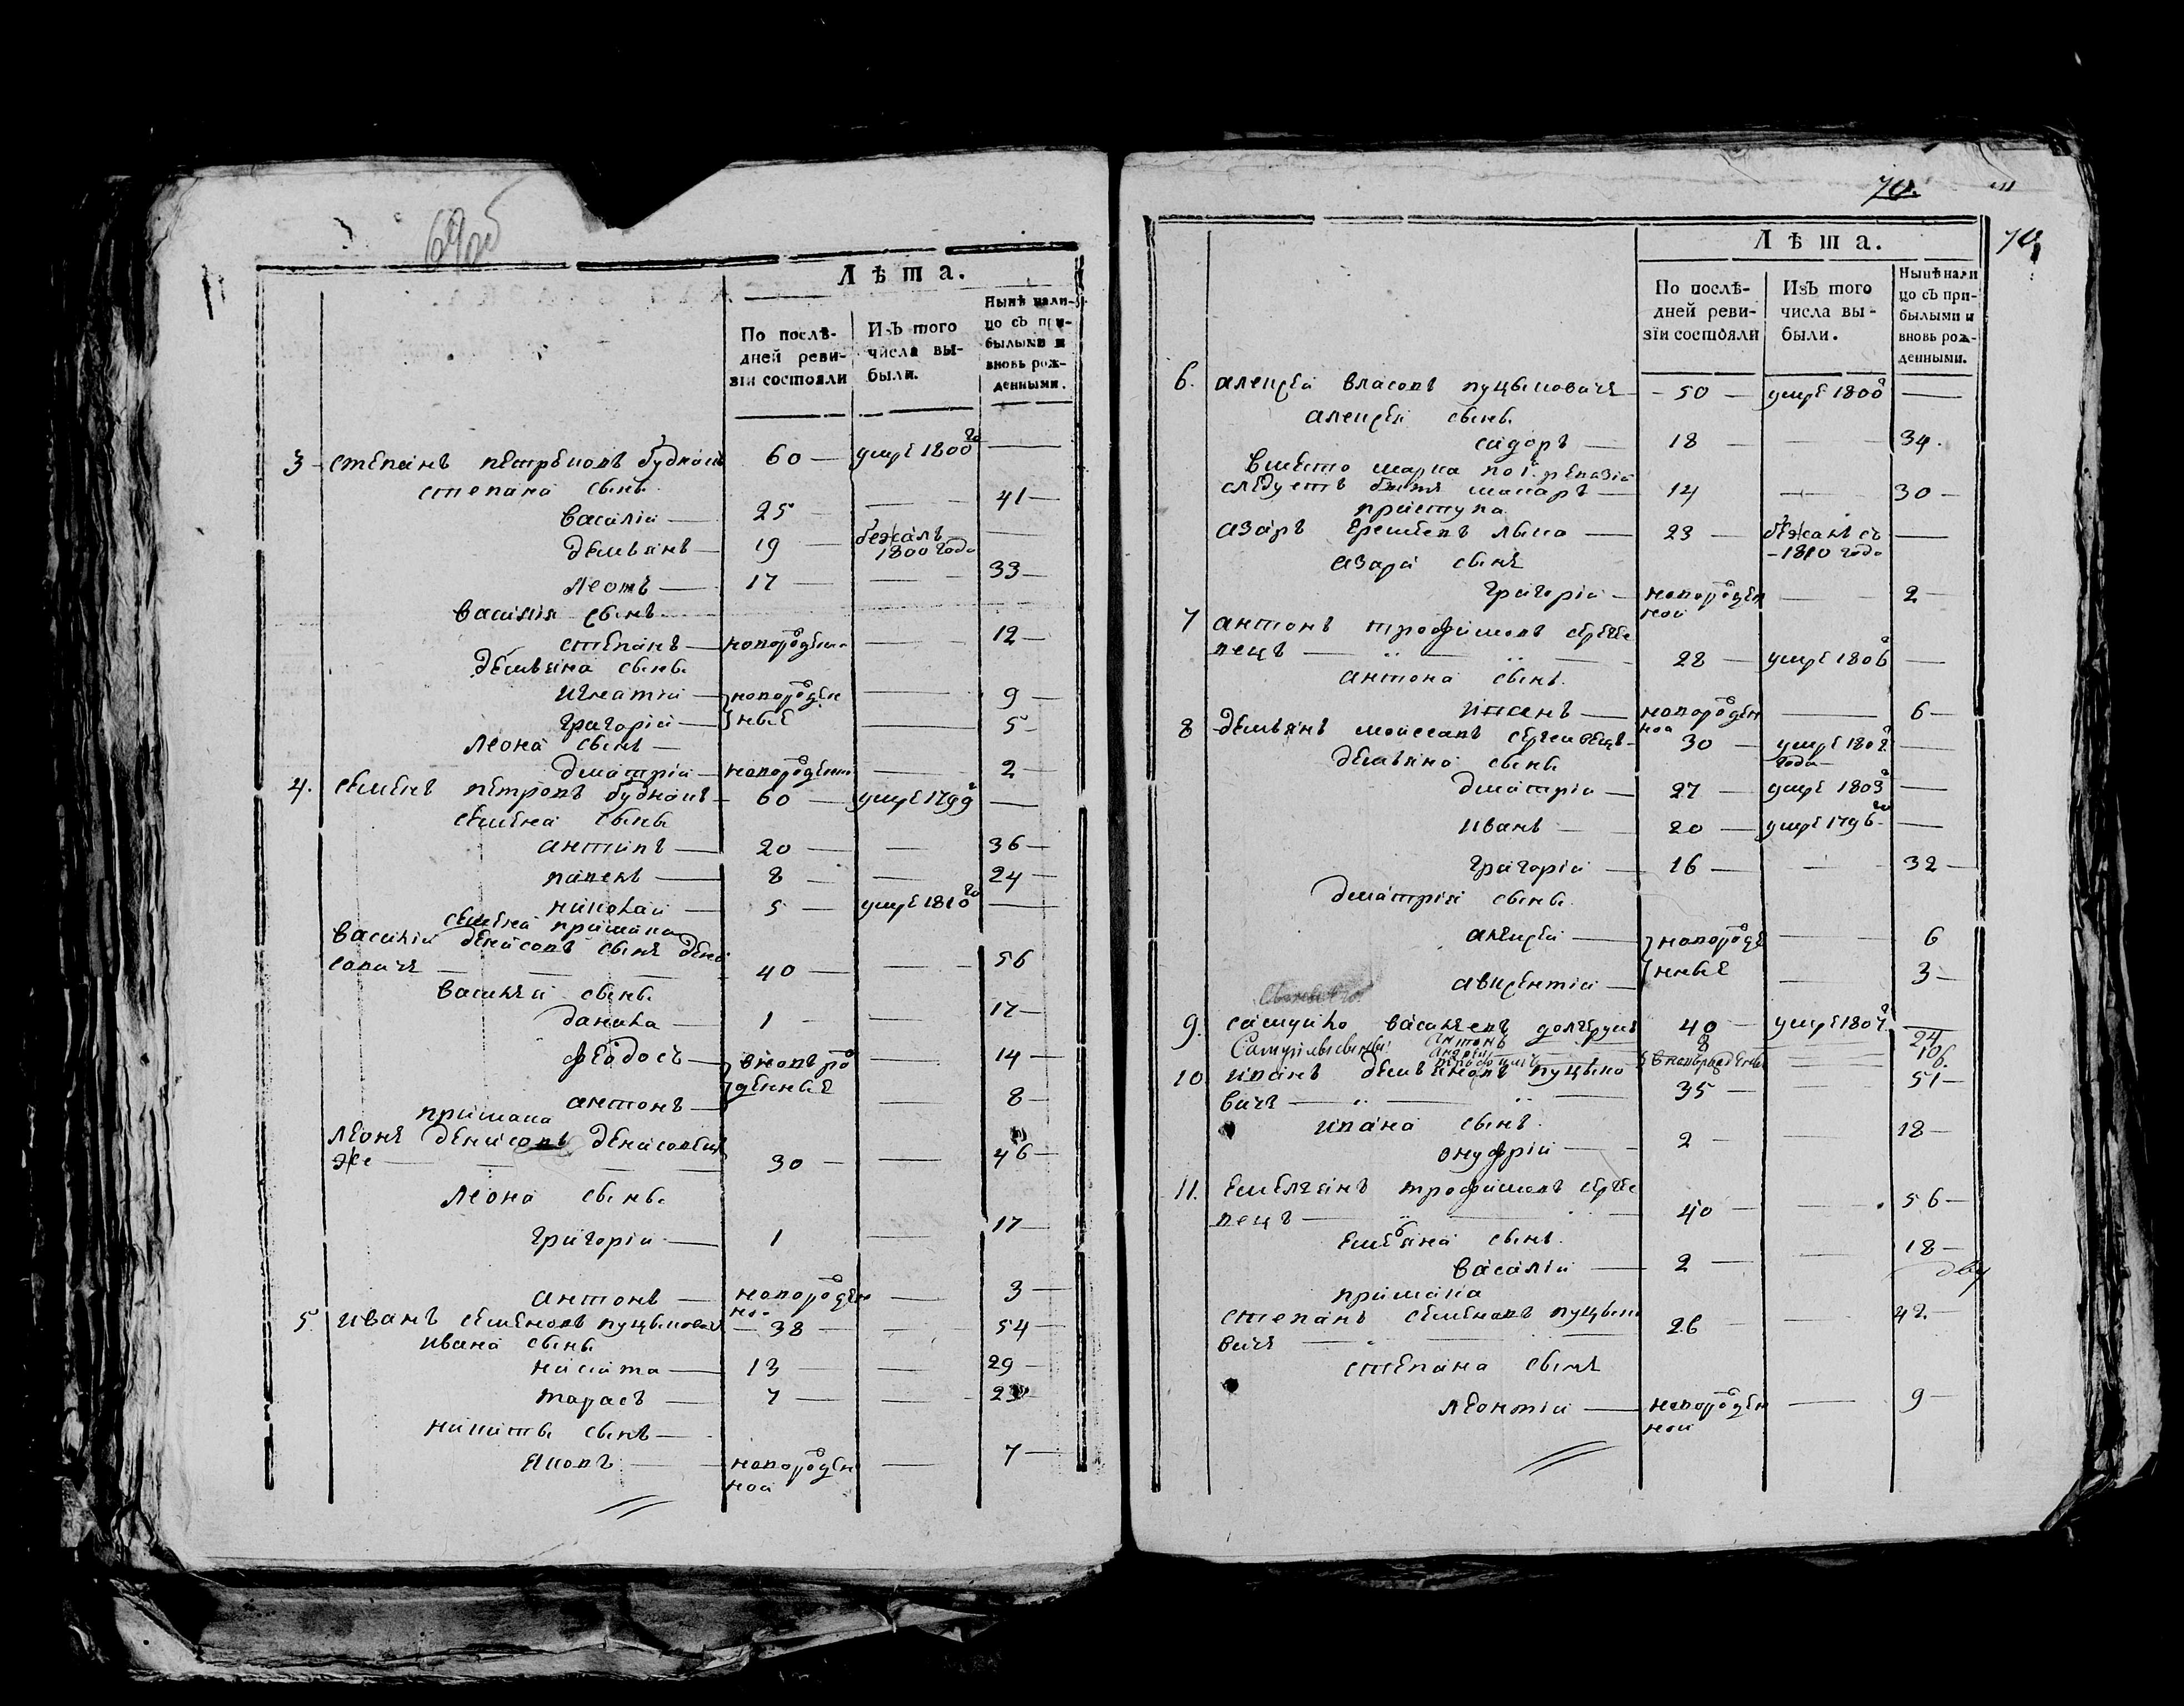 69об
Лѣта.
По послѣдней ревизіи состояли
Изъ того числа выбыли.
Нынѣ налицо съ прибылыми и вновь рожденными.
3 степанъ петровъ будникъ 60 — умре 1800 го —
степана сыны
василій — 25 — — 41 —
демьянъ — 19 — бежалъ 1800 года —
леонъ — 17 — — 33 —
василія сынъ
степанъ — новорожденн — 12 —
демьяна сыны
игнатій — новорожден — 9 —
григорій — ные — 5 —
леона сынъ —
дмитрій — новорожденн — 2 —
4. семенъ петровъ будникъ — 60 — умре 1799 —
семена сыны
антипъ — 20 — — 36 —
павелъ — 8 — — 24 —
николай — 5 — умре 1810 го —
семена примака
василій денисовъ сынъ дени
совичъ — 40 — — 56
василья сыны
данила — 1 — — 17 —
феодосъ — вновъ ро — 14 —
антонъ — жденные — 8 —
примака
леонъ денисовъ денисовичъ
же — 30 — — 46 —
леона сыны
григорій — 1 — 17 —
антонъ — новорожден — 3 —
ной
5. иванъ семеновъ пуцыкович — 38 — — 54 —
ивана сыны
никита — 13 — — 29 —
тарасъ — 7 — — 23
никиты сынъ —
яковъ — новорожден — 7 —
ной
70.
70
Лѣта.
По послѣдней ревизіи состояли
Изъ того числа выбыли.
Нынѣ налицо съ прибылыми и вновь рожденными.
6. алексей власовъ пуцыковичъ — 50 — умре 1800 —
алексея сыны
сидоръ — 18 — — 34.
вместо марка по ревизіи
следуетъ быть макаръ — 14 — 30 —
азаръ еремеевъ — 23 — бежалъ съ —
1810 года
азара сынъ
григорій — новорожден — 2
ной
7 антонъ трофимовъ серге
вецъ — 28 — умре 1806 —
антона сынъ.
новорожден — 6 —
ной
8 демьянъ моисеовъ сергиевецъ — 30 — умре 1802 —
года
демьяна сыны
дмитрій — 27 — умре 1803 —
иванъ — 20 — умре 1796 го —
григорій — 16 — — 32 —
дмитрія сыны
алексей — новорожде — 6
авксентій — нные — 3 —
9. самуйло васильевъ 40 — умре 1807 —
Самуйлы сыны: Антонъ 8 24
Андрей вновьрожденны 10
6.
10 иванъ демьяновъ пуцыко
вичъ — 35 — 51 —
ивана сынъ.
онуфрій — 2 — 18 —
11. емельянъ трофимовъ серге
вецъ — 40 — 56 —
емельяна сынъ.
василій — 2 — 18 —
примака
степанъ семеновъ пуцыко
вичъ — 26 — 42. —
степана сынъ
леонтій — новорожден — 9 —
ной